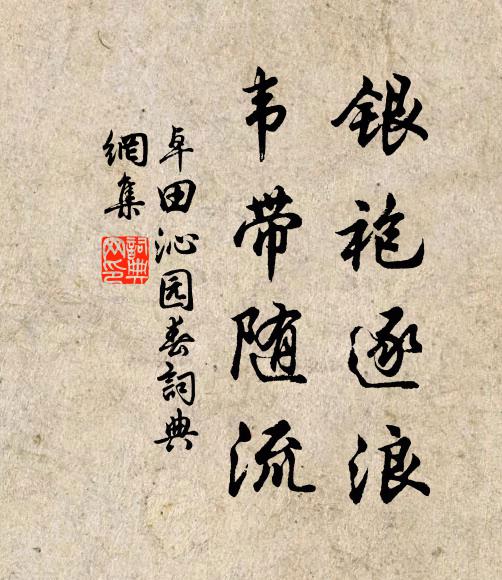 银袍逐浪
韦带随流
卓田沁园春詞典
網集
詞典网印